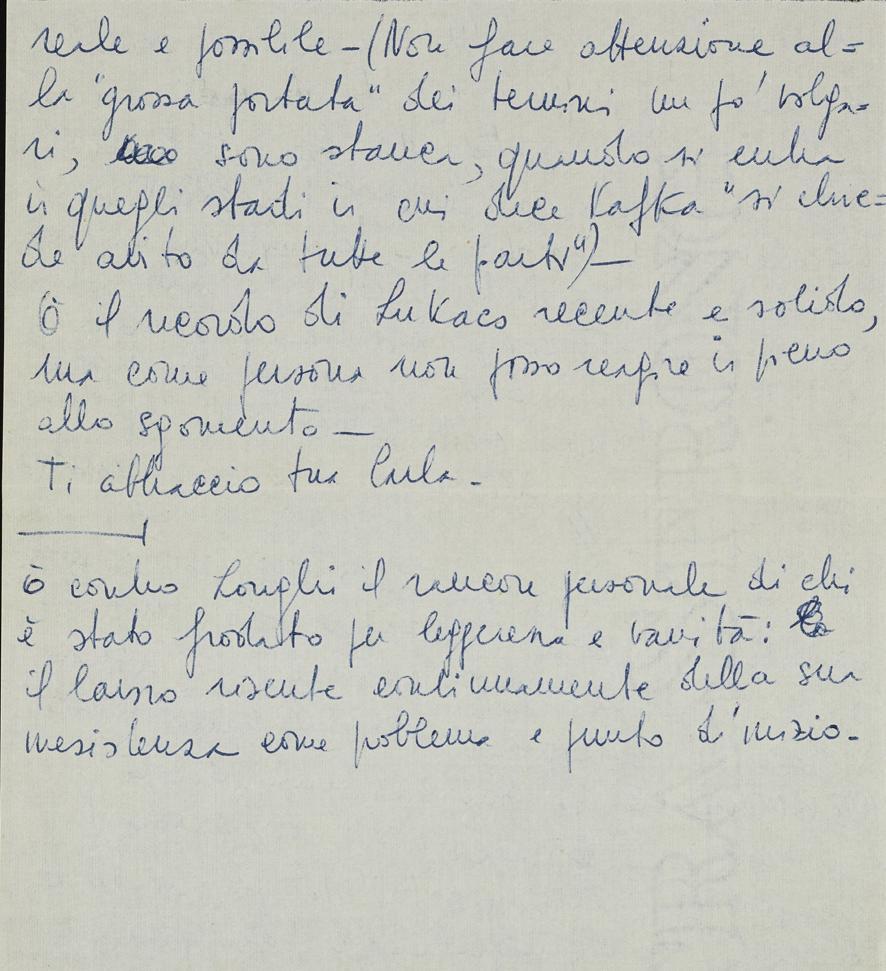 reale e possibile – (Non fare attenzione al=
la "grossa portata" dei termini un po' volga=
ri, sono stanca, quando si entra
in quegli stadi in cui dice Kafka "si chie=
de aiuto da tutte le parti") —
Ò il ricordo di Lukacs recente e solido,
ma come persona non posso reagire in pieno
allo sgomento —
Ti abbraccio tua Carla -
ò contro Longhi il rancore personale di chi
è stato frodato per leggerezza e vanità:
il lavoro risente continuamente della sua
inesistenza come problema e punto d'inizio -